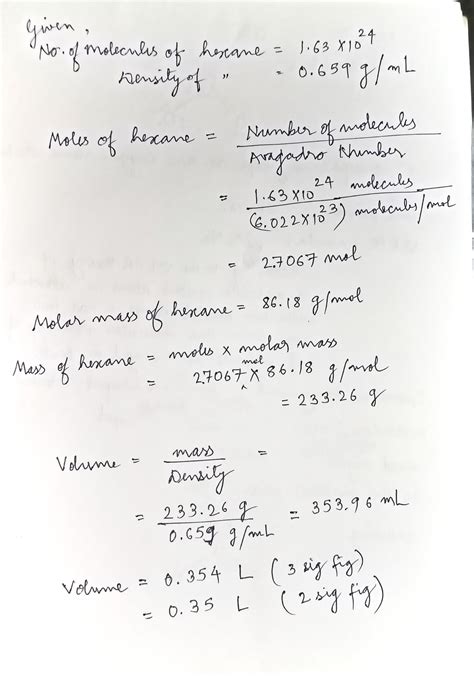 Given,
No. of molecules of hexane = 1.63 X10^24
Density of " = 0.659 g/mL
Moles of hexane = Number of molecules / Avagadro Number
= 1.63X10^24 molecules / (6.022X10^23) molecules/mol
= 2.7067 mol
Molar mass of hexane = 86.18 g/mol
Mass of hexane = moles x molar mass
= 2.7067 mol X 86.18 g/mol
= 233.26 g
Volume = mass / Density =
= 233.26 g / 0.659 g/mL = 353.96 mL
Volume = 0.354 L (3 sig fig)
= 0.35 L (2 sig fig)